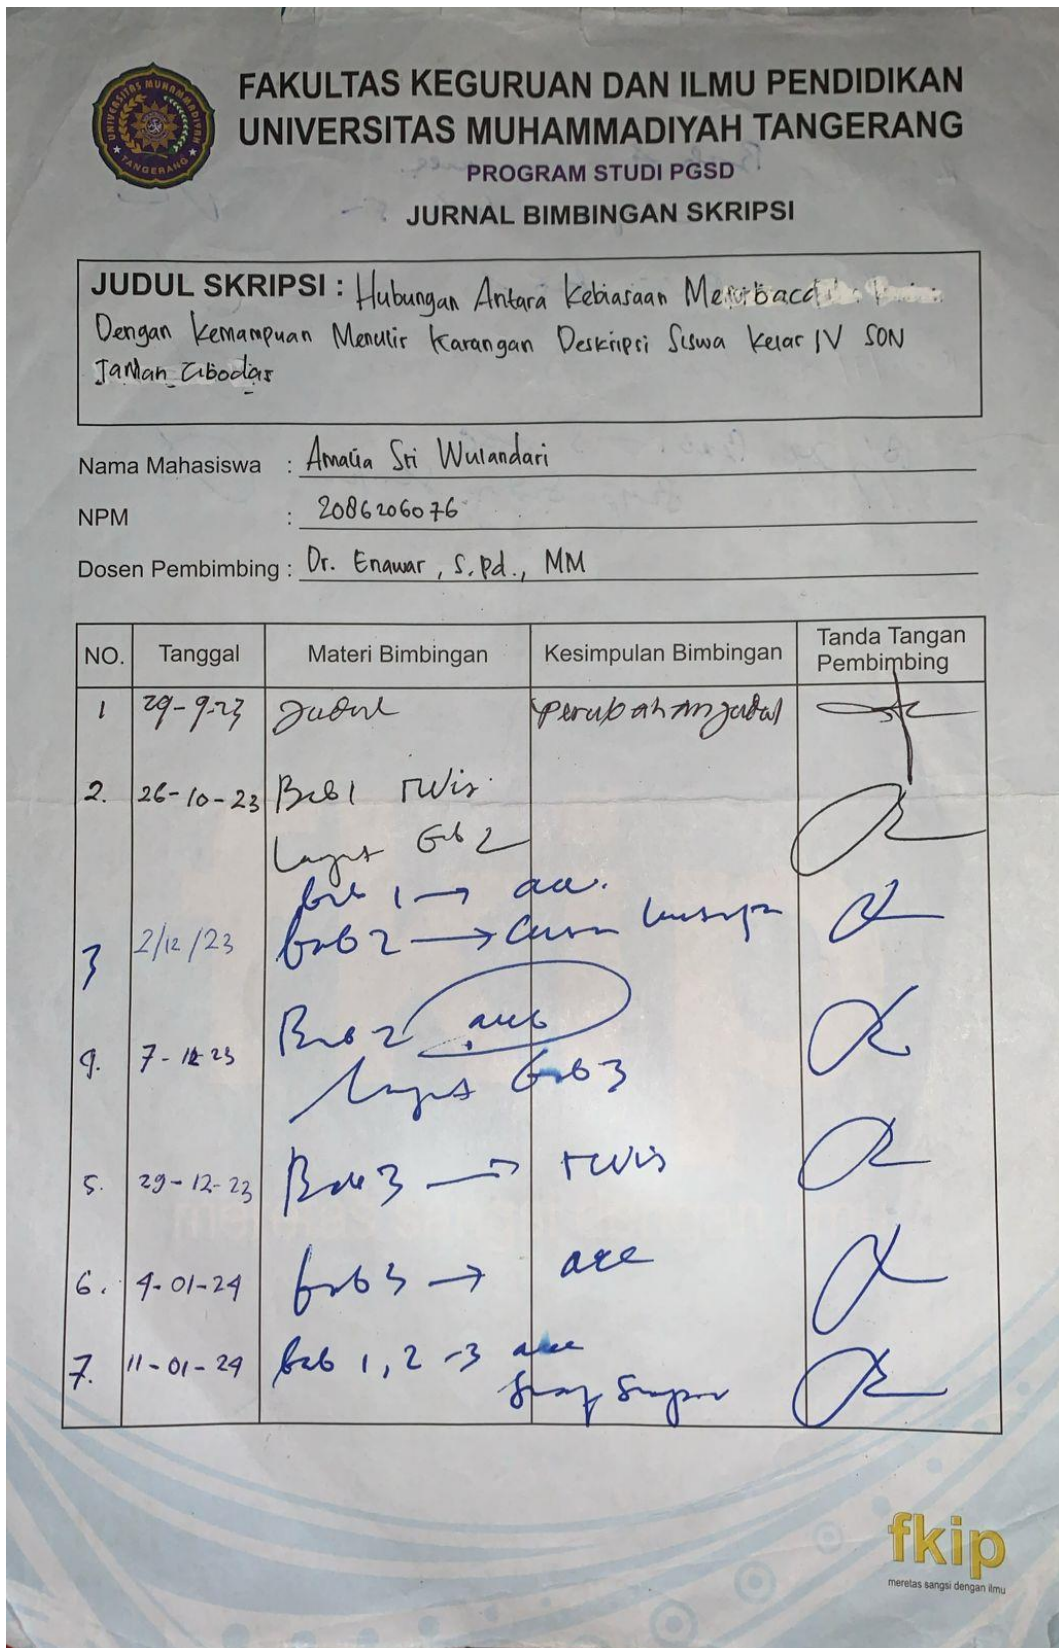 UNIVERSITAS MUHAMMADIYAH
TANGERANG
FAKULTAS KEGURUAN DAN ILMU PENDIDIKAN
UNIVERSITAS MUHAMMADIYAH TANGERANG
PROGRAM STUDI PGSD
JURNAL BIMBINGAN SKRIPSI
JUDUL SKRIPSI : Hubungan Antara Kebiasaan Membaca
Dengan Kemampuan Menulis Karangan Deskripsi Siswa Kelas IV SDN
Taman Cibodas
Nama Mahasiswa : Amalia Sri Wulandari
NPM : 2086206076
Dosen Pembimbing : Dr. Enawar, S.Pd., MM
NO. Tanggal Materi Bimbingan Kesimpulan Bimbingan Tanda Tangan
Pembimbing
1 29-9-23 Judul Perubahan Judul
2. 26-10-23 Bab 1 revisi
Lanjut Bab 2
bab 1 → acc.
3 2/12/23 bab 2 →
4. 7-12-23 Bab 2 acc
Lanjut Bab 3
5. 29-12-23 Bab 3 → revisi
6. 4-01-24 bab 3 → acc
7. 11-01-24 bab 1, 2 -3 acc
fkip
meretas sangsi dengan ilmu